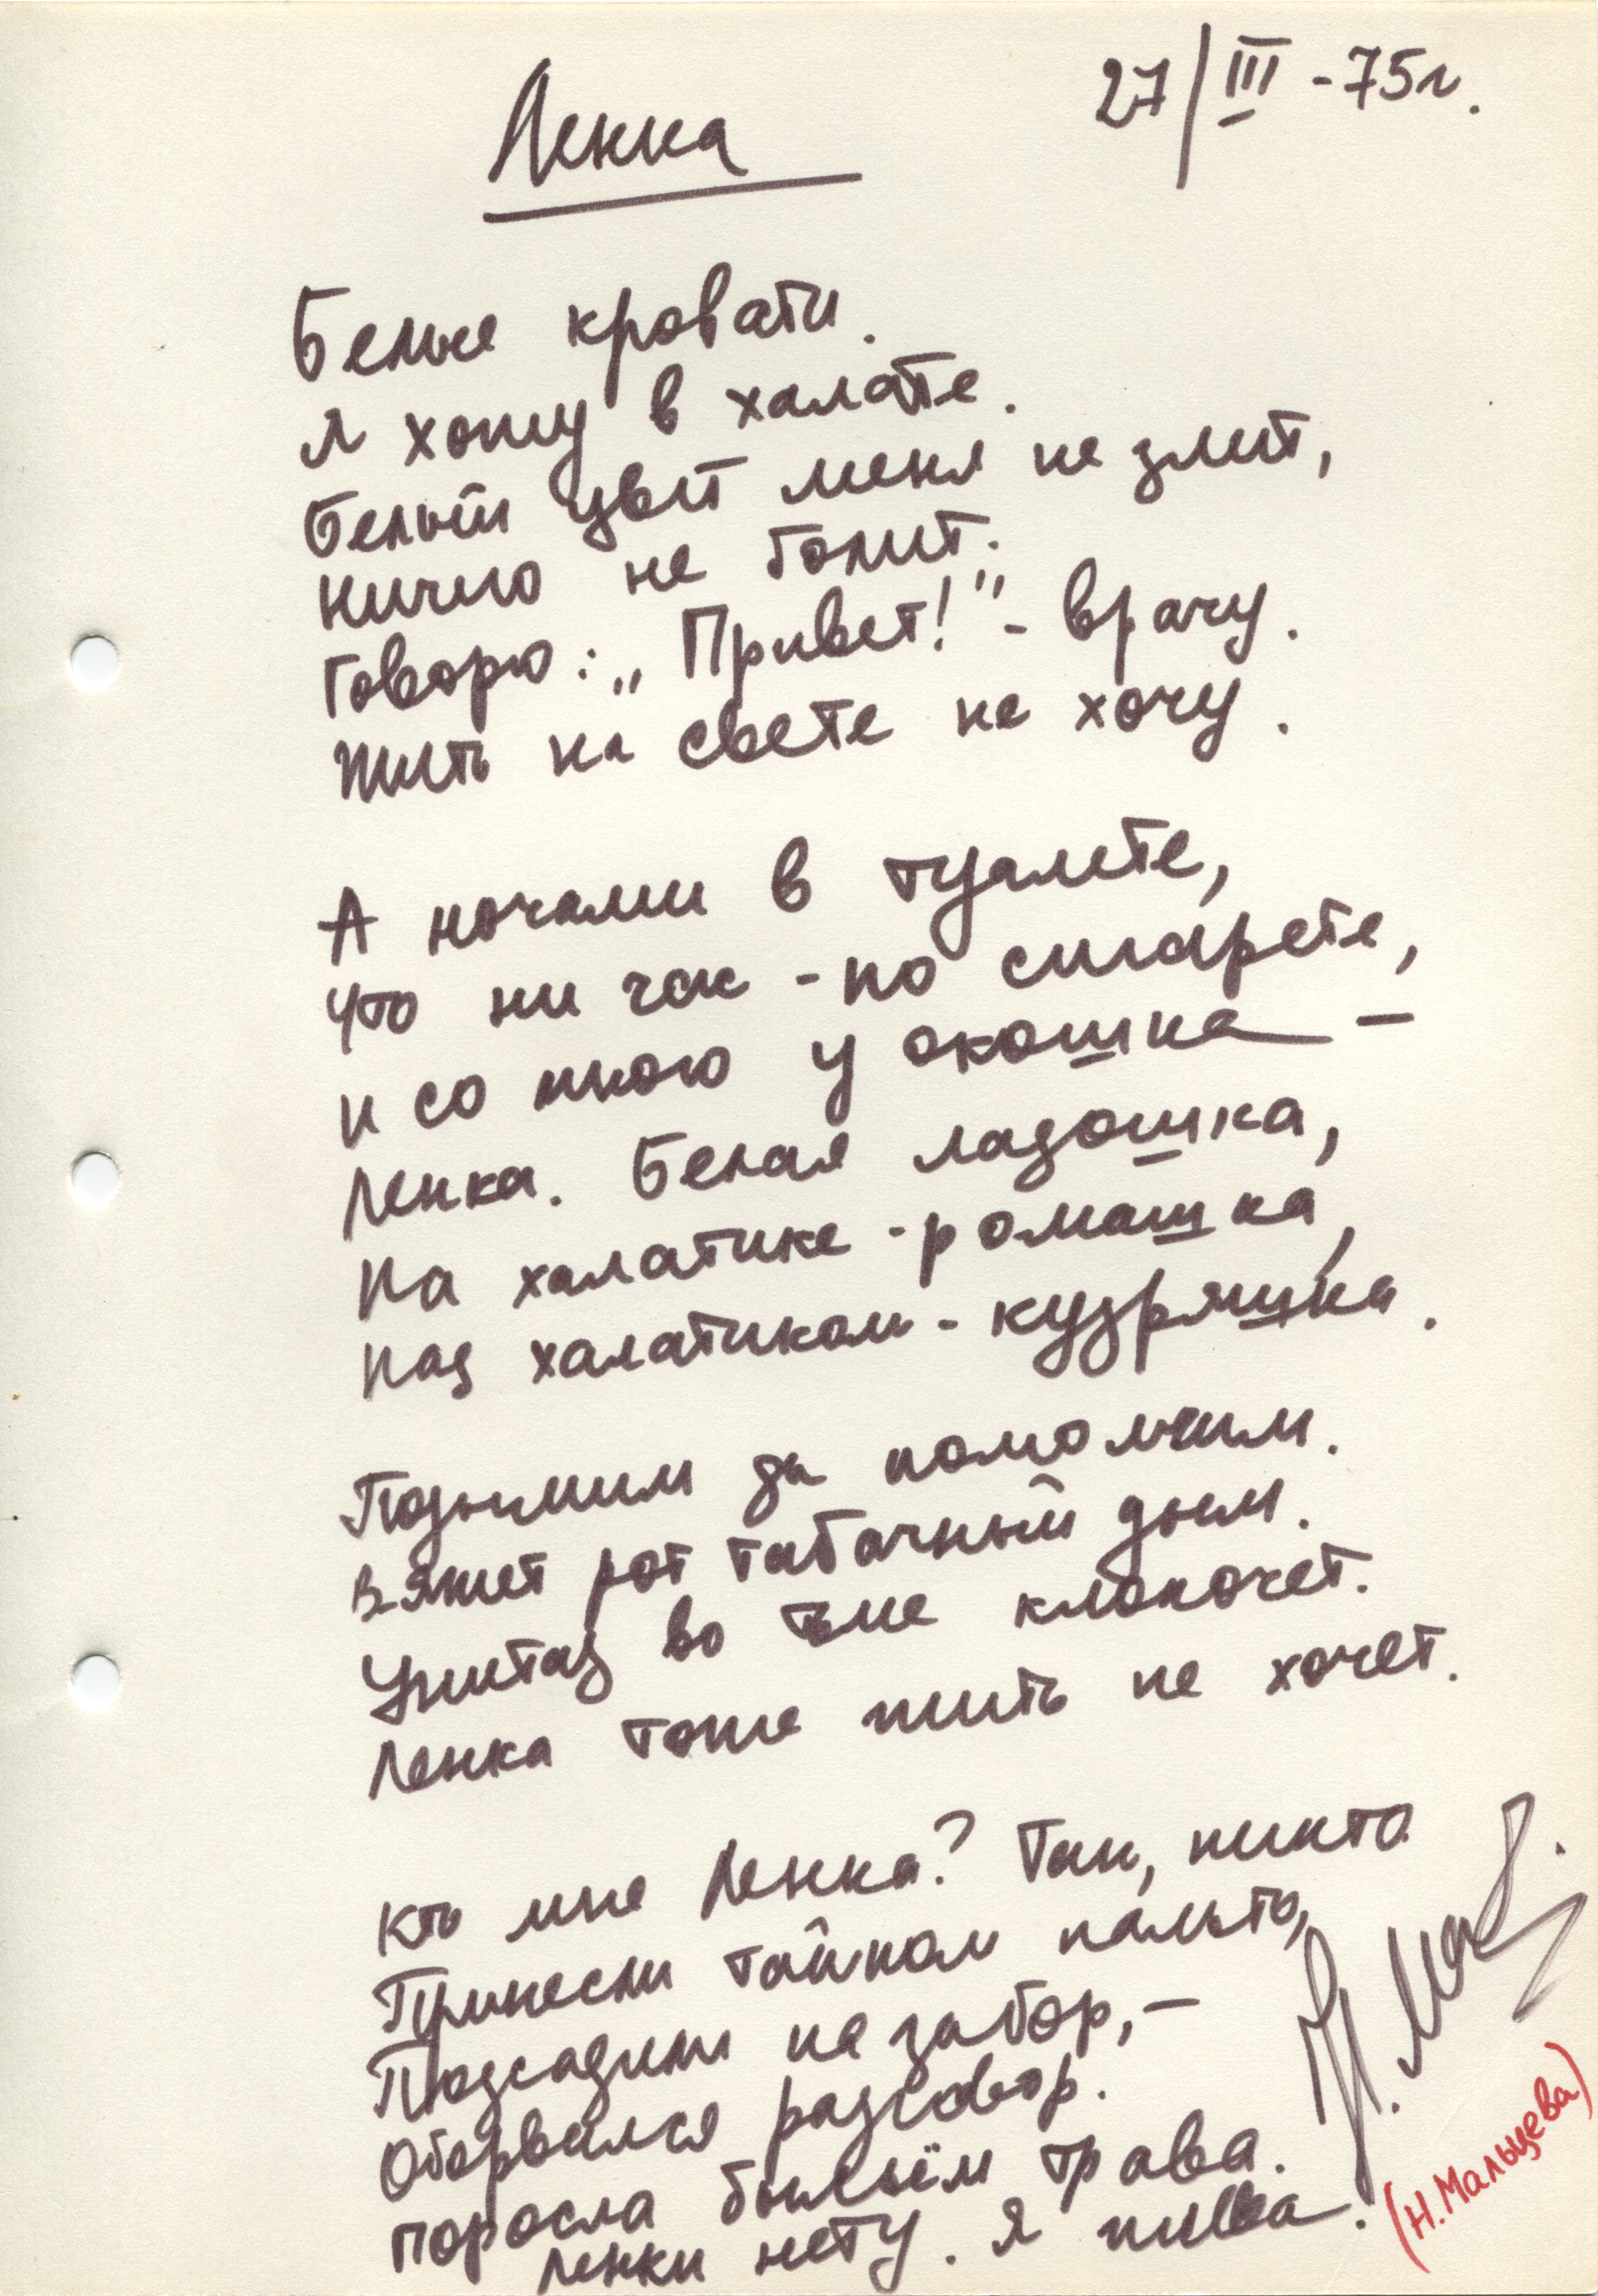 27/III - 75 г.
Ленка
Белые кровати.
Я хожу в халате.
Белый цвет меня не злит,
Ничего не болит.
Говорю: „Привет!" - врачу.
Жить на свете не хочу.
А ночами в туалете,
Что ни час - по сигарете,
И со мною у окошка –
Ленка. Белая ладошка,
На халатике - ромашка,
Над халатиком - кудряшка.
Подымим да помолчим.
Вяжет рот табачный дым.
Унитаз во тьме клокочет.
Ленка тоже жить не хочет.
Кто мне Ленка? Так, никто
Принесли тайком пальто,
Подсадили на забор, –
Оборвался разговор.
Поросла быльём трава.
Ленки нету. Я жива.
Н. Мальц.
(Н. Мальцева)